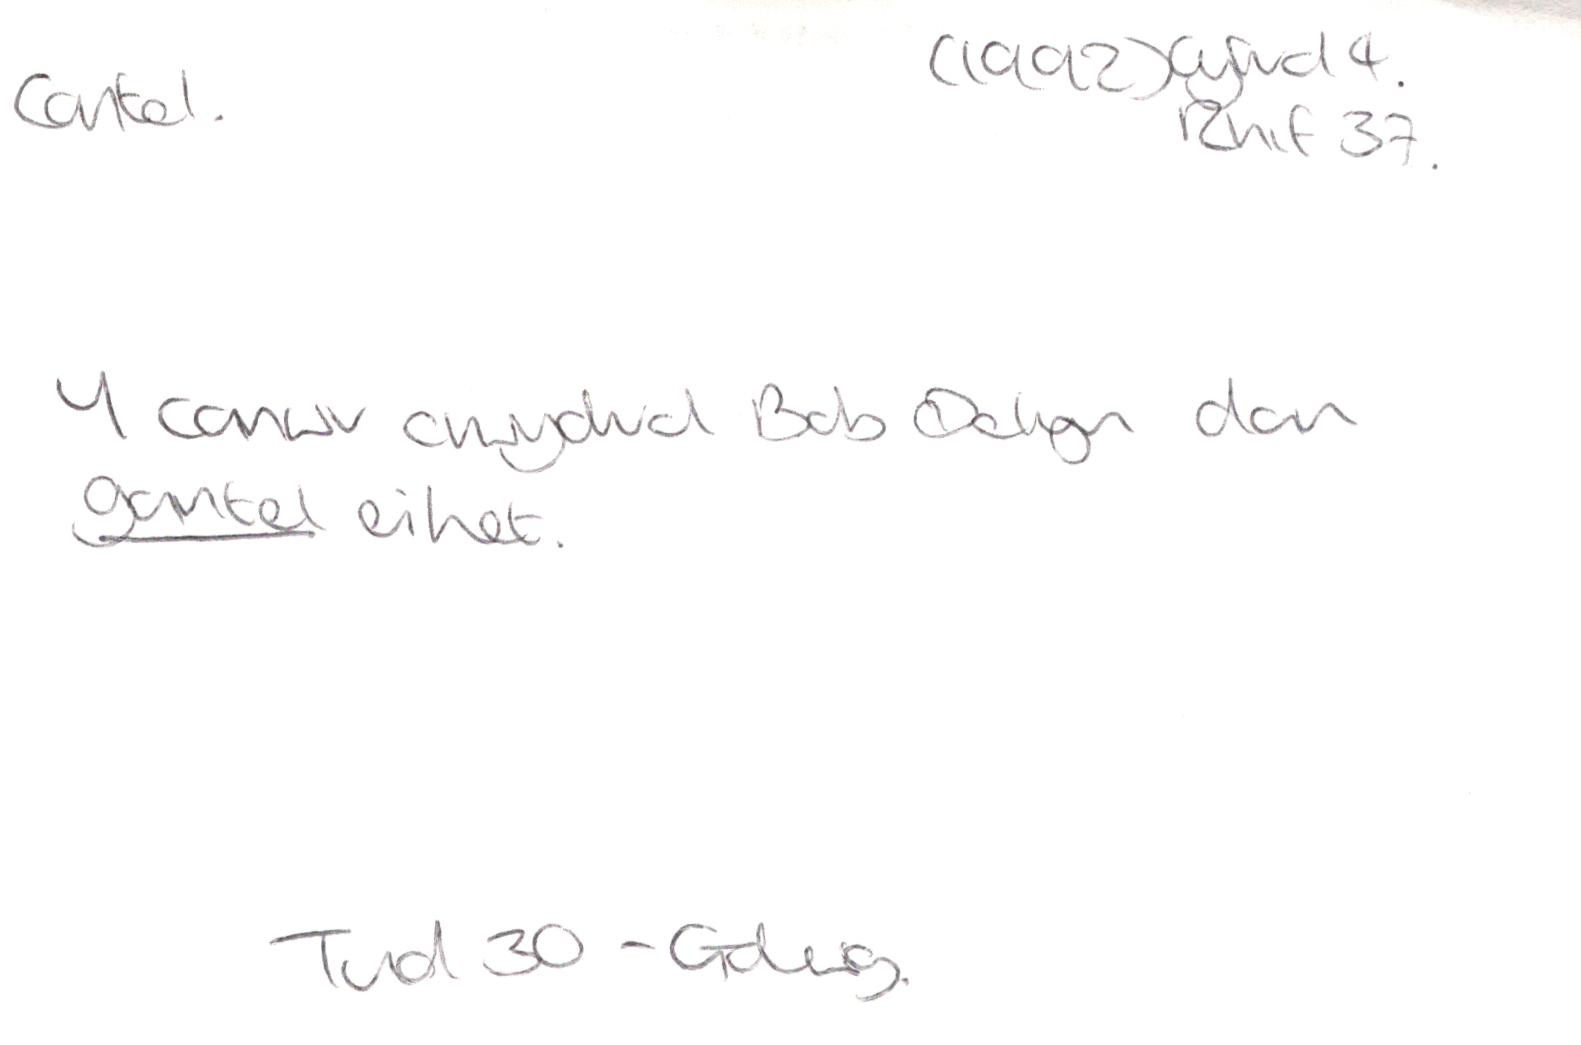 Cantel.
(1992) Cyfrol 4.
Rhif 37.
Y canwr enwydd Bob Delyn dan
gantel eihet.
Tud 30 - Golwg.